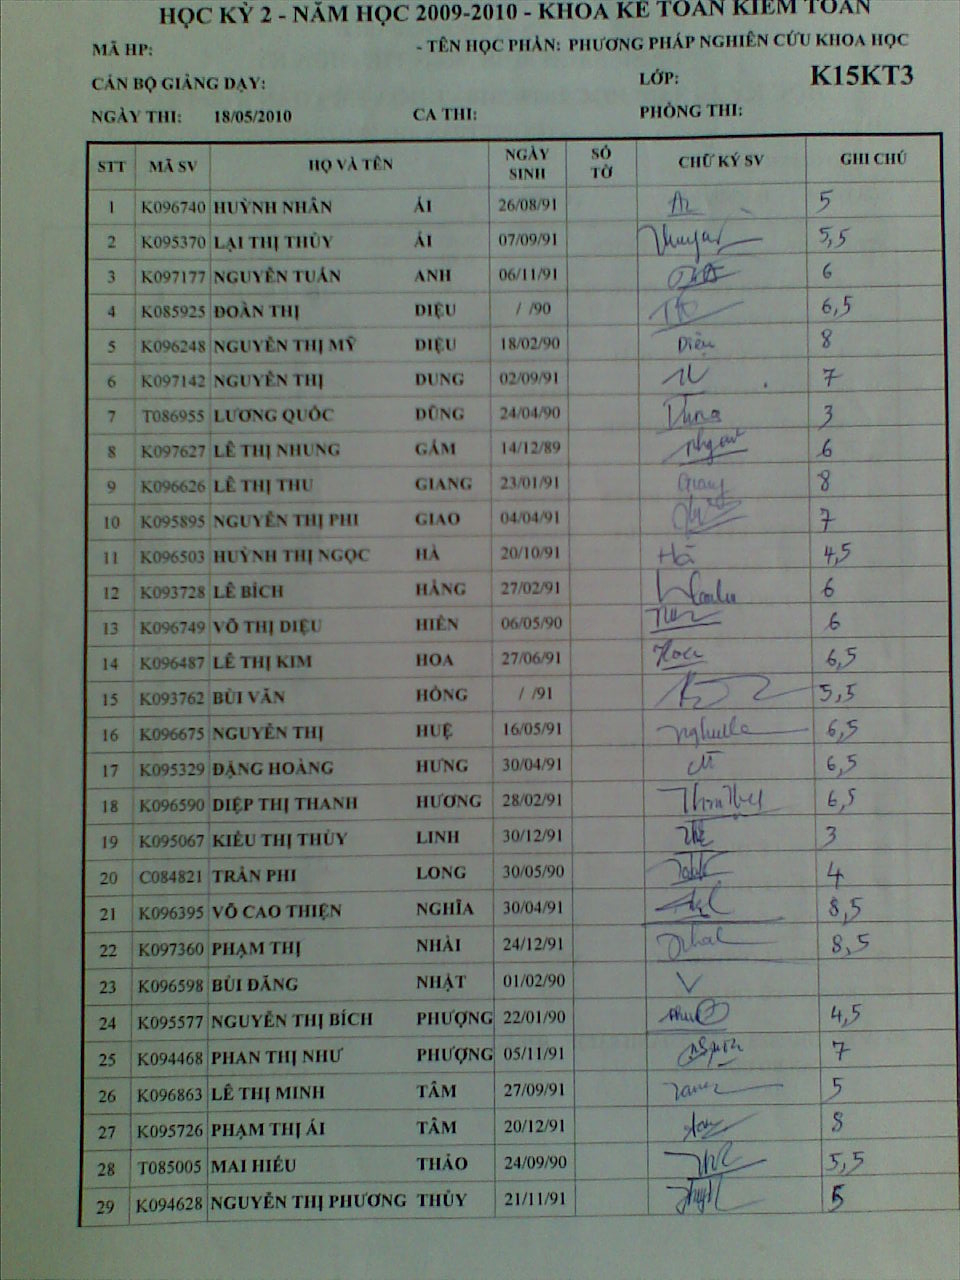 HỌC KỲ 2 - NĂM HỌC 2009-2010 - KHOA KẾ TOÁN KIỂM TOÁN
MÃ HP: - TÊN HỌC PHẦN: PHƯƠNG PHÁP NGHIÊN CỨU KHOA HỌC
CÁN BỘ GIẢNG DẠY: LỚP: K15KT3
NGÀY THI: 18/05/2010 CA THI: PHÒNG THI:
STT MÃ SV HỌ VÀ TÊN NGÀY SINH SỐ TỜ CHỮ KÝ SV GHI CHÚ
1 K096740 HUỲNH NHÂN ÁI 26/08/91 5
2 K095370 LẠI THỊ THÚY ÁI 07/09/91 5,5
3 K097177 NGUYỄN TUẤN ANH 06/11/91 6
4 K085925 ĐOÀN THỊ DIỆU / /90 6,5
5 K096248 NGUYỄN THỊ MỸ DIỆU 18/02/90 Diệu 8
6 K097142 NGUYỄN THỊ DUNG 02/09/91 7
7 T086955 LƯƠNG QUỐC DŨNG 24/04/90 Dũng 3
8 K097627 LÊ THỊ NHUNG GẤM 14/12/89 6
9 K096626 LÊ THỊ THU GIANG 23/01/91 Giang 8
10 K095895 NGUYỄN THỊ PHI GIAO 04/04/91 7
11 K096503 HUỲNH THỊ NGỌC HÀ 20/10/91 Hà 4,5
12 K093728 LÊ BÍCH HẰNG 27/02/91 6
13 K096749 VÕ THỊ DIỆU HIỀN 06/05/90 6
14 K096487 LÊ THỊ KIM HOA 27/06/91 Hoa 6,5
15 K093762 BÙI VĂN HỒNG / /91 5,5
16 K096675 NGUYỄN THỊ HUỆ 16/05/91 6,5
17 K095329 ĐẶNG HOÀNG HƯNG 30/04/91 6,5
18 K096590 DIỆP THỊ THANH HƯƠNG 28/02/91 6,5
19 K095067 KIỀU THỊ THÙY LINH 30/12/91 3
20 C084821 TRẦN PHI LONG 30/05/90 4
21 K096395 VÕ CAO THIỆN NGHĨA 30/04/91 8,5
22 K097360 PHẠM THỊ NHÀI 24/12/91 8,5
23 K096598 BÙI ĐĂNG NHẬT 01/02/90 V
24 K095577 NGUYỄN THỊ BÍCH PHƯỢNG 22/01/90 4,5
25 K094468 PHAN THỊ NHƯ PHƯỢNG 05/11/91 7
26 K096863 LÊ THỊ MINH TÂM 27/09/91 5
27 K095726 PHẠM THỊ ÁI TÂM 20/12/91 8
28 T085005 MAI HIẾU THẢO 24/09/90 5,5
29 K094628 NGUYỄN THỊ PHƯƠNG THỦY 21/11/91 5